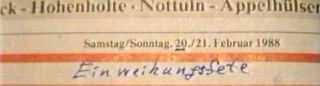 ck - Hohenholte · Nottuln - Appelhülsen
Samstag/Sonntag, 20./21. Februar 1988
Einweihungsfete